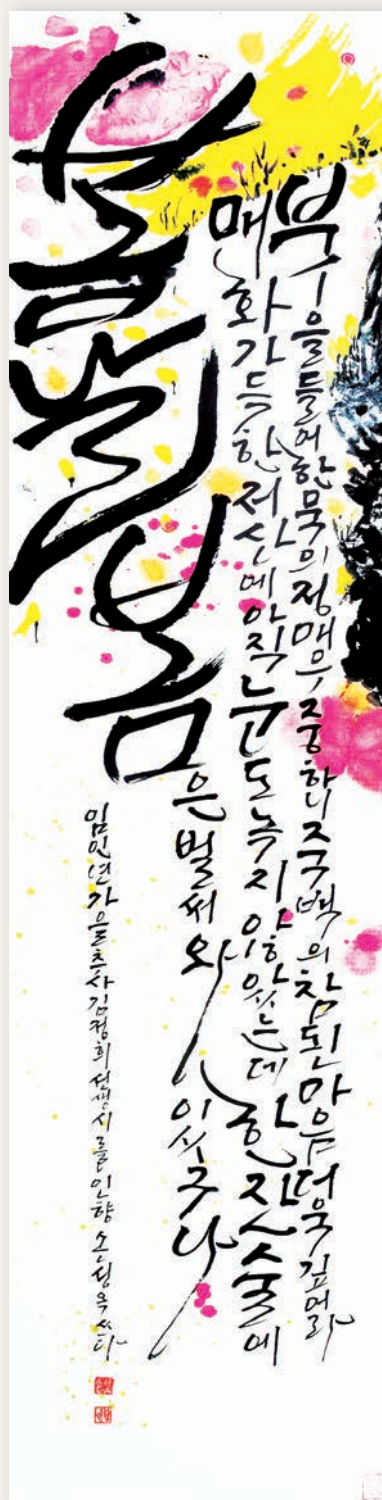 붓을들어한묵의정매우중하니죽백의참된마음더욱깊어라
매화가득한저산에아직눈도녹지않았는데한잔술에
봄날봄은벌써와있구나
임인년가을추사김정희선생시를인향손성옥쓰다